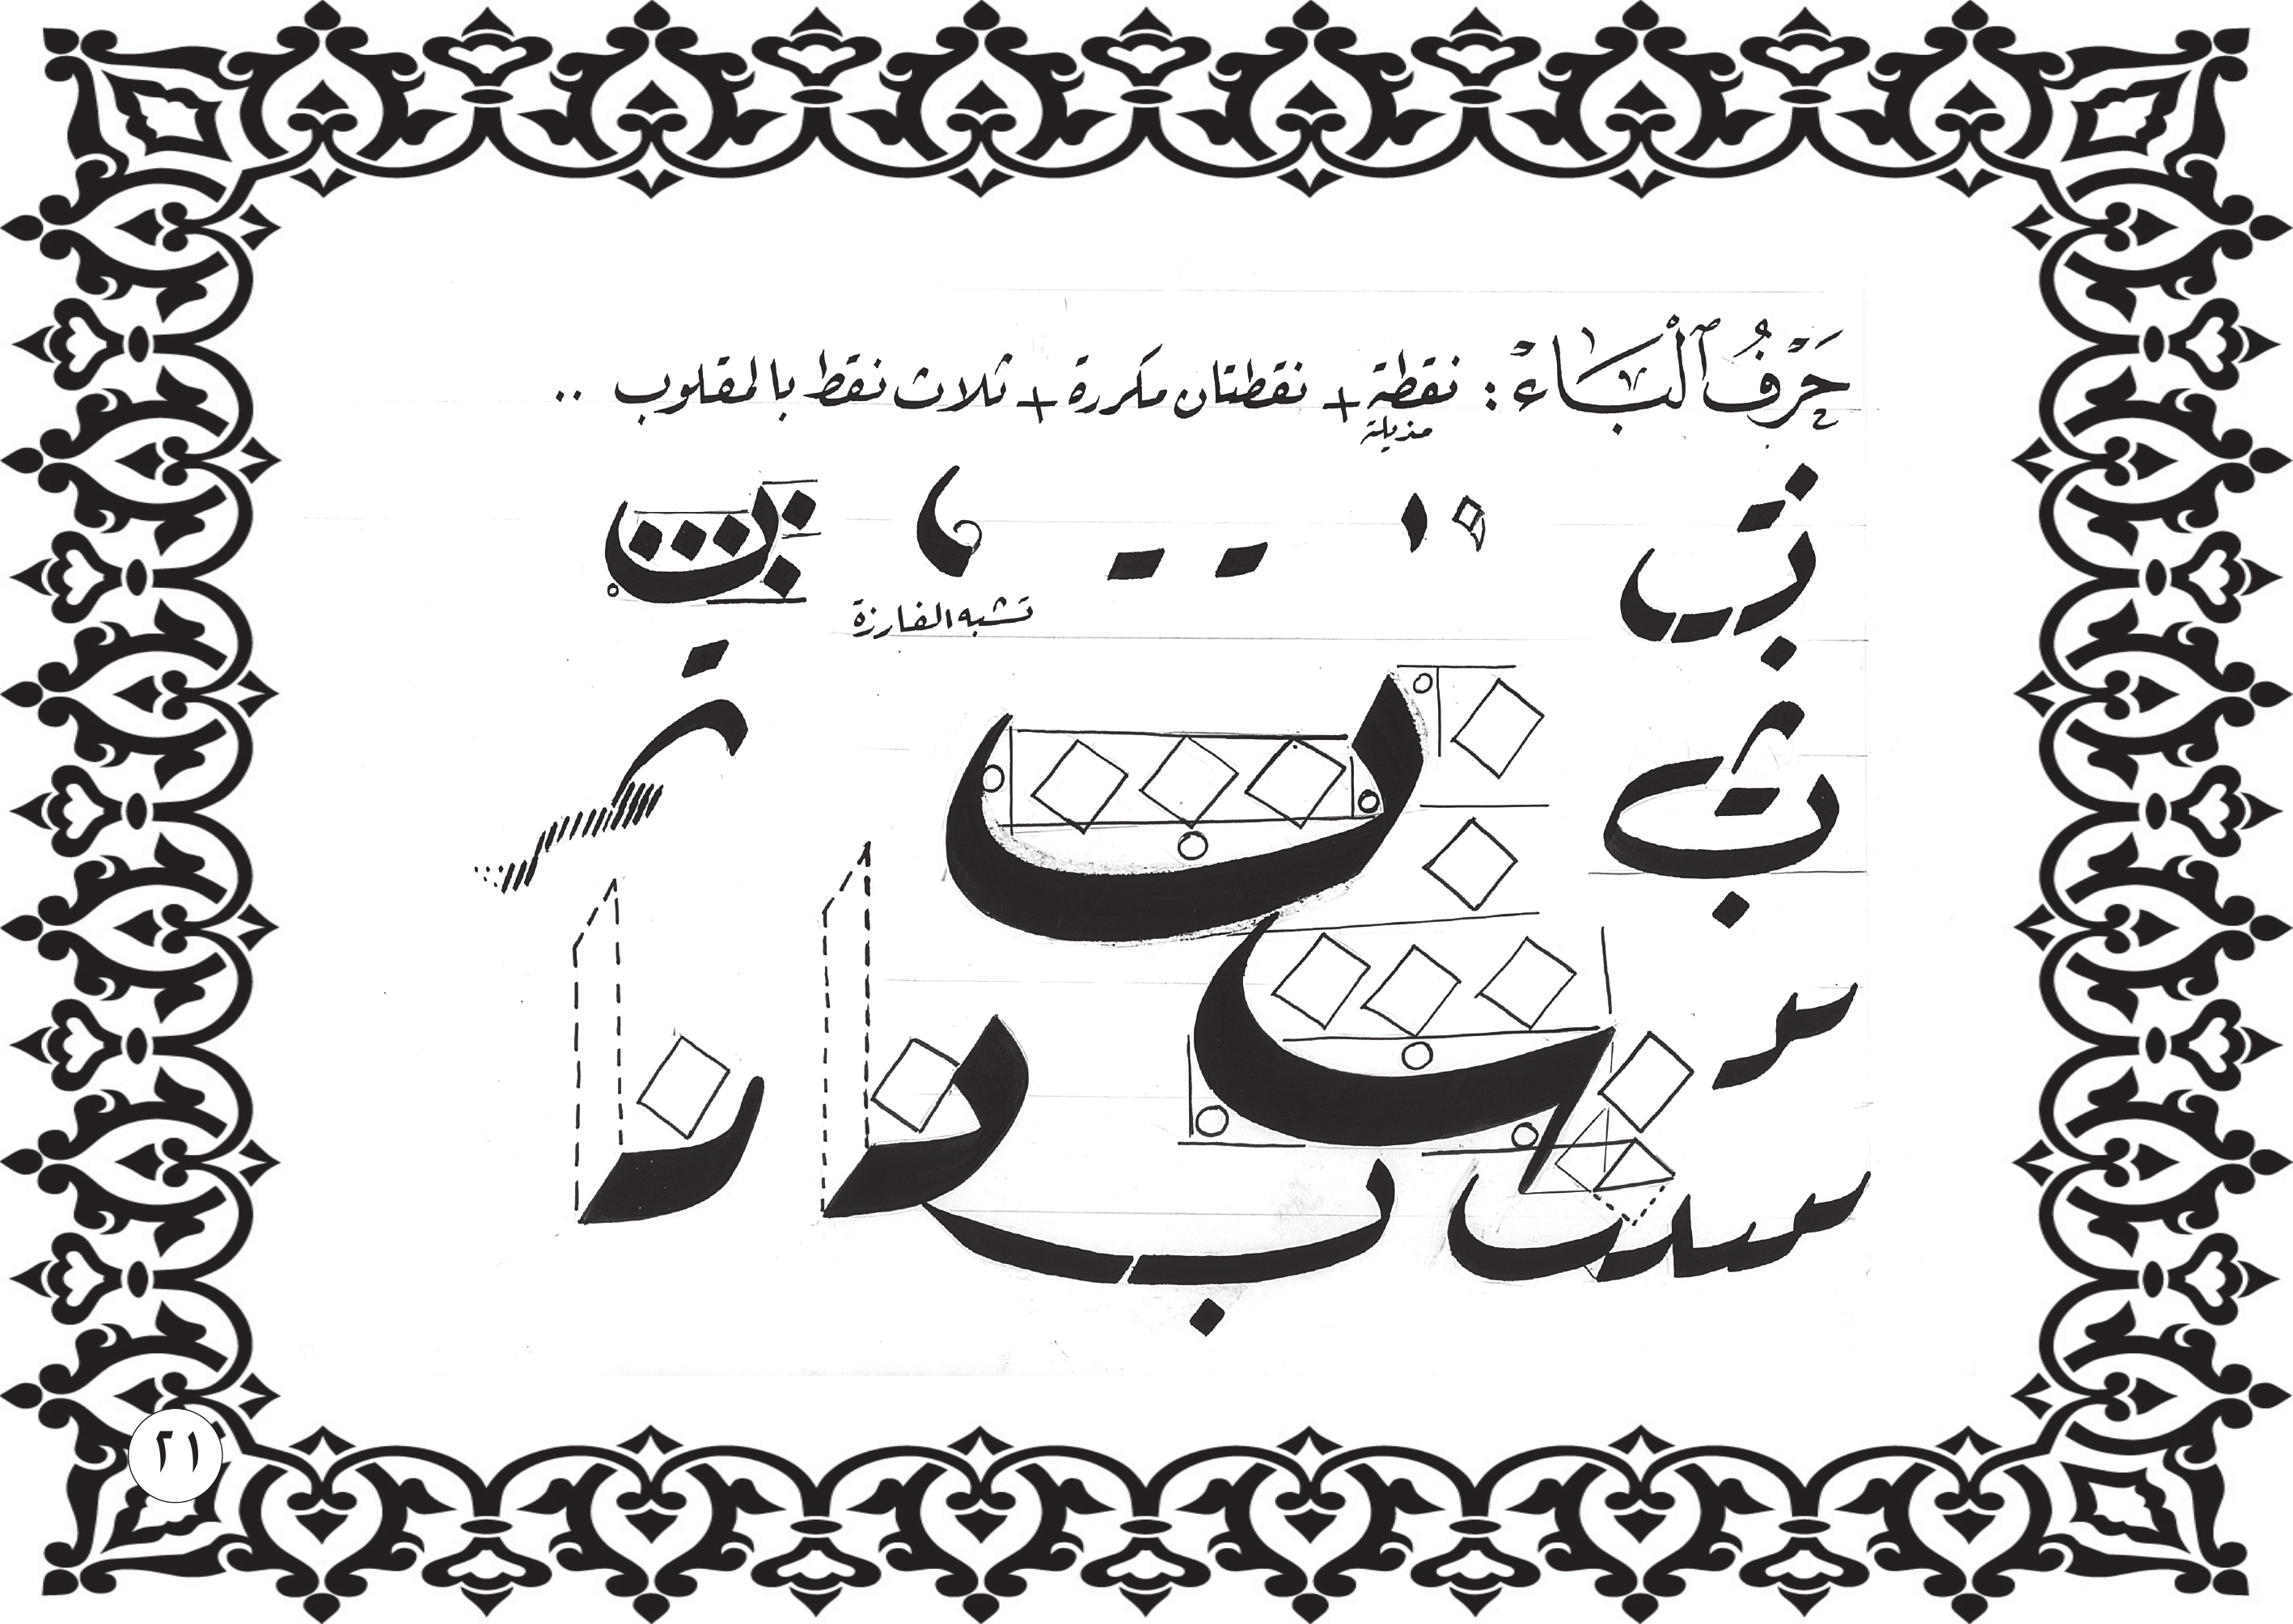 حَرْفُ ٱلْبَاءْ : نقطة + نقطتان مكررة + ثلاث نقط بالمقلوب ..
مذيلة
تشبه الفارزة
٢١